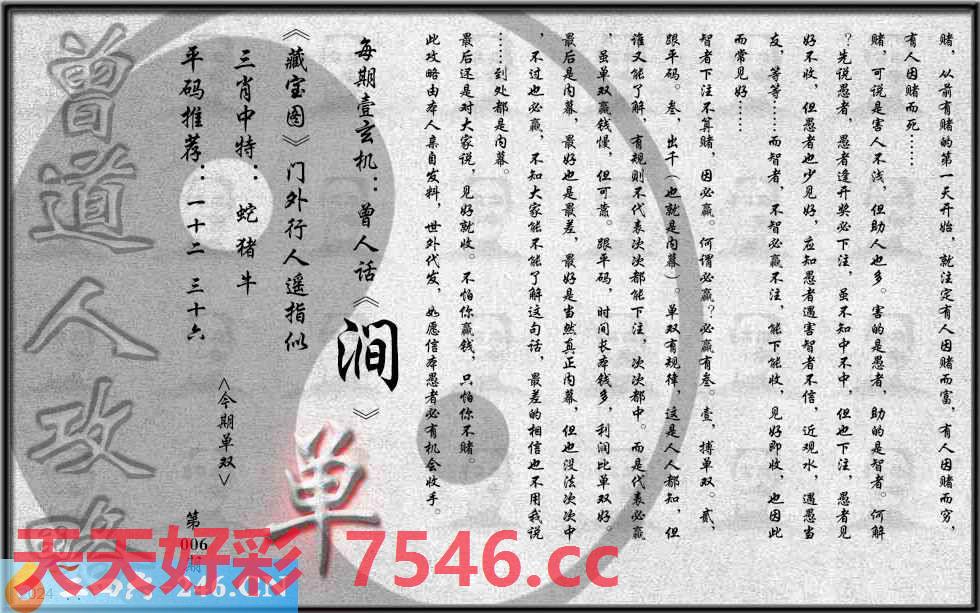 赌，从前有赌的第一天开始，就注定有人因赌而富，有人因赌而穷，
有人因赌而死……
赌，可说是害人不浅，但助人也多。害的是愚者，助的是智者。何解
？先说愚者，愚者逢开奖必下注，虽不知中不中，但也下注，愚者见
好不收，但愚者也少见好，应知愚者遇害智者不信，近观水，遇愚当
友，等等……而智者，不智必赢不注，能下能收，见好即收，也因此
而常见好……
智者下注不算赌，因必赢。何谓必赢？必赢有叁。壹，搏单双。贰，
跟平码。叁，出千（也就是内幕）。单双有规律，这是人人都知，但
谁又能了解，有规则不代表次次都能下注，次次都中。而是代表必赢
，虽单双赢钱慢，但可靠。跟平码，时间长本钱多，利润比单双好。
最后是内幕，最好也是最差，最好是当然真正内幕，但也没法次次中
，不过也必赢，不知大家能不能了解这句话，最差的相信也不用我说
……到处都是内幕。
最后还是对大家说，见好就收。不怕你赢钱，只怕你不赌。
此攻略由本人亲自发料，世外代发，如愿信本愚者必有机会收手。
每期壹玄机：曾人话《涧》
《藏宝图》门外行人遥指似
三肖中特：蛇猪牛
平码推荐：一十二 三十六
<今期单双>
单
第
006
期
曾道人攻略
天天好彩 7546.cc
246.CN